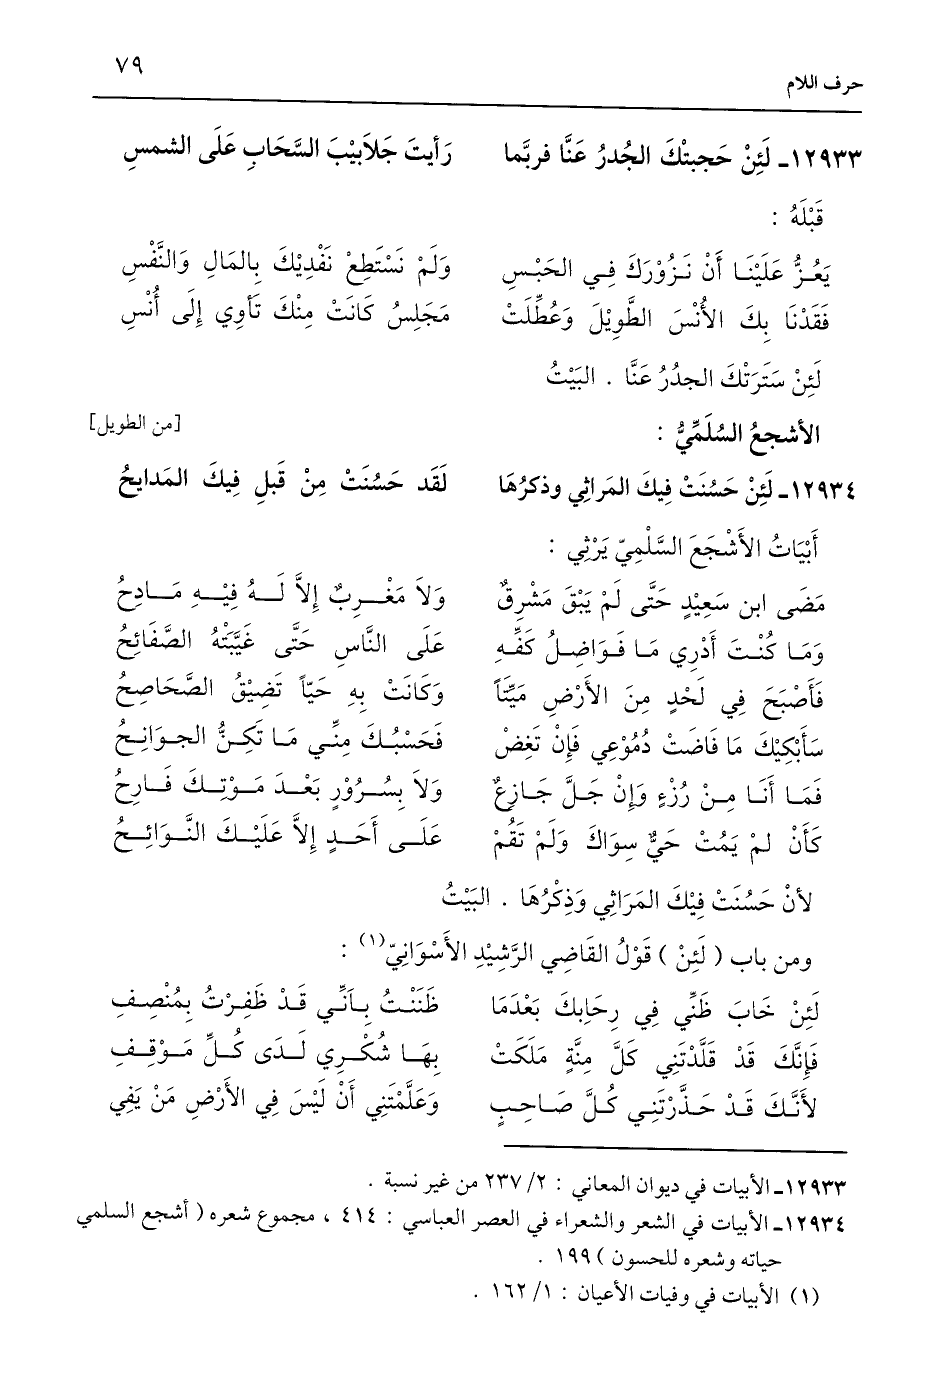 حرف اللام ٧٩
١٢٩٣٣ـ لَئِنْ حَجبتْكَ الجُدرُ عَنَّا فربَّما رَأيتَ جَلاَبيْبَ السَّحَابِ عَلَى الشمسِ
قَبْلَهُ :
يَعُزُّ عَلَيْنَا أَنْ نَزُوْرَكَ فِي الحَبْسِ وَلَمْ نَسْتَطِعْ نَفْدِيْكَ بِالمَالِ وَالنَّفْسِ
فَقَدْنَا بِكَ الأُنْسَ الطَّوِيْلَ وَعُطِّلَتْ مَجَلِسُ كَانَتْ مِنْكَ تَأوِي إِلَى أُنْسِ
لَئِنْ سَتَرَتْكَ الجدُرُ عَنَّا . البَيْتُ
الأشجعُ السُلَمِّيُّ : [من الطويل]
١٢٩٣٤ـ لَئِنْ حَسُنَتْ فِيكَ المَراثِي وذكرُهَا لَقَد حَسُنَتْ مِنْ قَبلِ فِيكَ المَدايحُ
أَبْيَاتُ الأَشْجَعَ السَّلْمِيّ يَرْثِي :
مَضَى ابن سَعِيْدٍ حَتَّى لَمْ يَبْقَ مَشْرِقٌ وَلاَ مَغْرِبٌ إِلاَّ لَهُ فِيْهِ مَادِحُ
وَمَا كُنْتَ أَدْرِي مَا فَوَاضِلُ كَفِّهِ عَلَى النَّاسِ حَتَّى غَيَّبَتْهُ الصَّفَائِحُ
فَأَصْبَحَ فِي لَحْدٍ مِنَ الأَرْضِ مَيِّتَاً وَكَانَتْ بِهِ حَيّاً تَضِيْقُ الصَّحَاصِحُ
سَأَبْكِيْكَ مَا فَاضَتْ دُمُوْعِي فَإِنْ تَغِضْ فَحَسْبُكَ مِنِّي مَا تَكِنُّ الجوَانِحُ
فَمَا أَنَا مِنْ رُزْءٍ وَإِنْ جَلَّ جَازِعٌ وَلاَ بِسُرُوْرٍ بَعْدَ مَوْتِكَ فَارِحُ
كَأَنْ لَمْ يَمُتْ حَيٌّ سِوَاكَ وَلَمْ تَقُمْ عَلَى أَحَدٍ إِلاَّ عَلَيْكَ النَّوَائِحُ
لأنْ حَسُنَتْ فِيْكَ المَرَاثِي وَذِكْرُهَا . البَيْتُ
ومن باب ( لَئِنْ ) قَوْلُ القَاضِي الرَّشِيْدِ الأَسْوَانِيّ(١) :
لَئِنْ خَابَ ظَنِّي فِي رِحَابِكَ بَعْدَمَا ظَنَنْتُ بِأَنِّي قَدْ ظَفِرْتُ بِمُنْصِفِ
فَإِنَّكَ قَدْ قَلَّدْتَنِي كُلَّ مِنَّةٍ مَلَكَتْ بِهَا شُكْرِي لَدَى كُلِّ مَوْقِفِ
لأَنَّكَ قَدْ حَذَّرْتَنِي كُلَّ صَاحِبٍ وَعَلَّمْتَنِي أَنْ لَيْسَ فِي الأَرْضِ مَنْ يَفِي
١٢٩٣٣ـ الأبيات في ديوان المعاني : ٢/ ٢٣٧ من غير نسبة .
١٢٩٣٤ـ الأبيات في الشعر والشعراء في العصر العباسي : ٤١٤ ، مجموع شعره ( أشجع السلمي
حياته وشعره للحسون ) ١٩٩ .
(١) الأبيات في وفيات الأعيان : ١/ ١٦٢ .